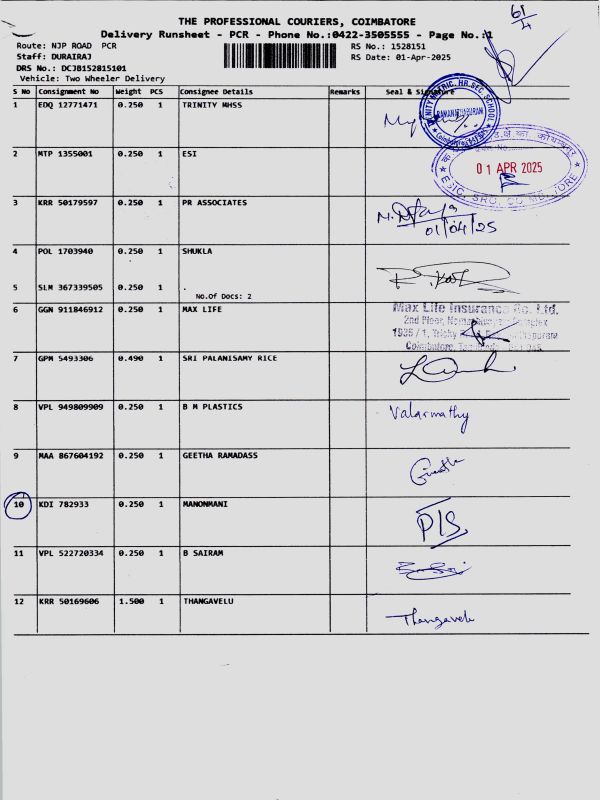 THE PROFESSIONAL COURIERS, COIMBATORE
Delivery Runsheet - PCR - Phone No.:0422-3505555 - Page No.:1
Route: NJP ROAD PCR
Staff: DURAIRAJ
DRS No.: DCJB152815101
Vehicle: Two Wheeler Delivery
RS No.: 1528151
RS Date: 01-Apr-2025
S No Consignment No Weight PCS Consignee Details Remarks Seal & Signature
1 EDQ 12771471 0.250 1 TRINITY MHSS
2 MTP 1355001 0.250 1 ESI
01 APR 2025
3 KRR 50179597 0.250 1 PR ASSOCIATES
01/04/25
4 POL 1703940 0.250 1 SHUKLA
5 SLM 367339505 0.250 1 .
No.Of Docs: 2
6 GGN 911846912 0.250 1 MAX LIFE
Max Life Insurance Co. Ltd.
7 GPM 5493306 0.490 1 SRI PALANISAMY RICE
8 VPL 949809909 0.250 1 B M PLASTICS Valarmathy
9 MAA 867604192 0.250 1 GEETHA RAMADASS
10 KDI 782933 0.250 1 MANONMANI
11 VPL 522720334 0.250 1 B SAIRAM
12 KRR 50169606 1.500 1 THANGAVELU Thangavelu